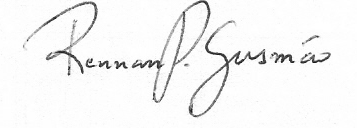 Rennan P. Gusmão